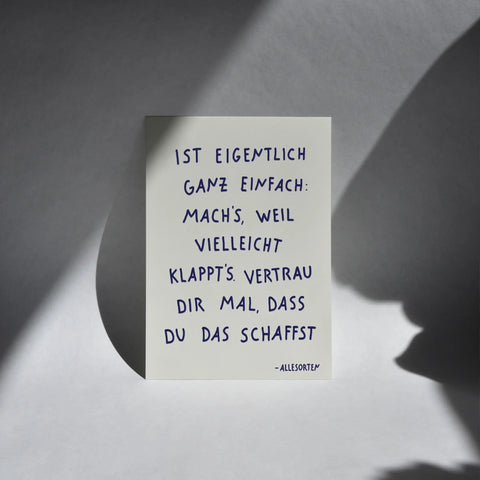 IST EIGENTLICH
GANZ EINFACH:
MACH'S, WEIL
VIELLEICHT
KLAPPT'S. VERTRAU
DIR MAL, DASS
DU DAS SCHAFFST
-ALLESORTEN